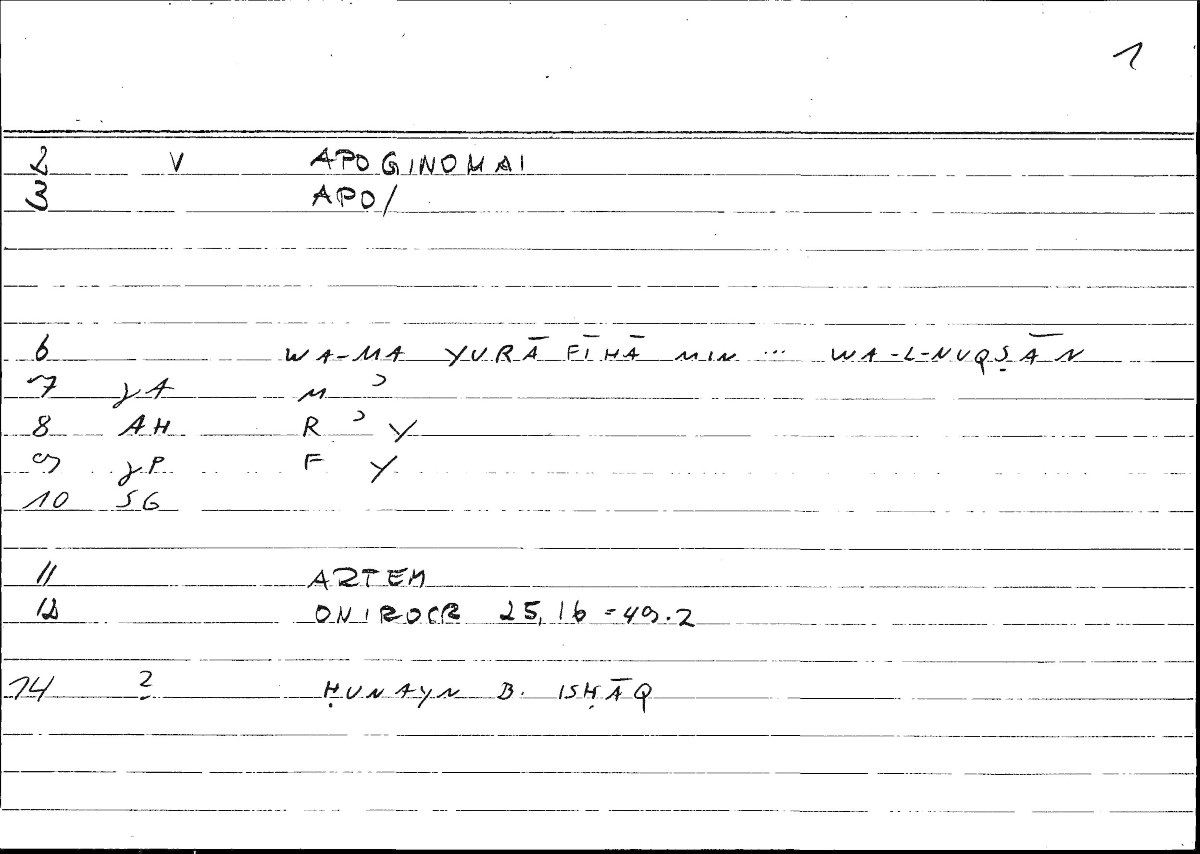 1
2 V APOGINOMAI
3 APO/
6 WA-MA YURĀ FĪHĀ MIN ... WA-L-NUQṢĀN
7 γA M ʾ
8 AH R ʾ Y
9 γP F Y
10 SG
11 ARTEM
12 ONIROCR 25,16 = 49.2
14 2 ḤUNAYN B. ISḤĀQ